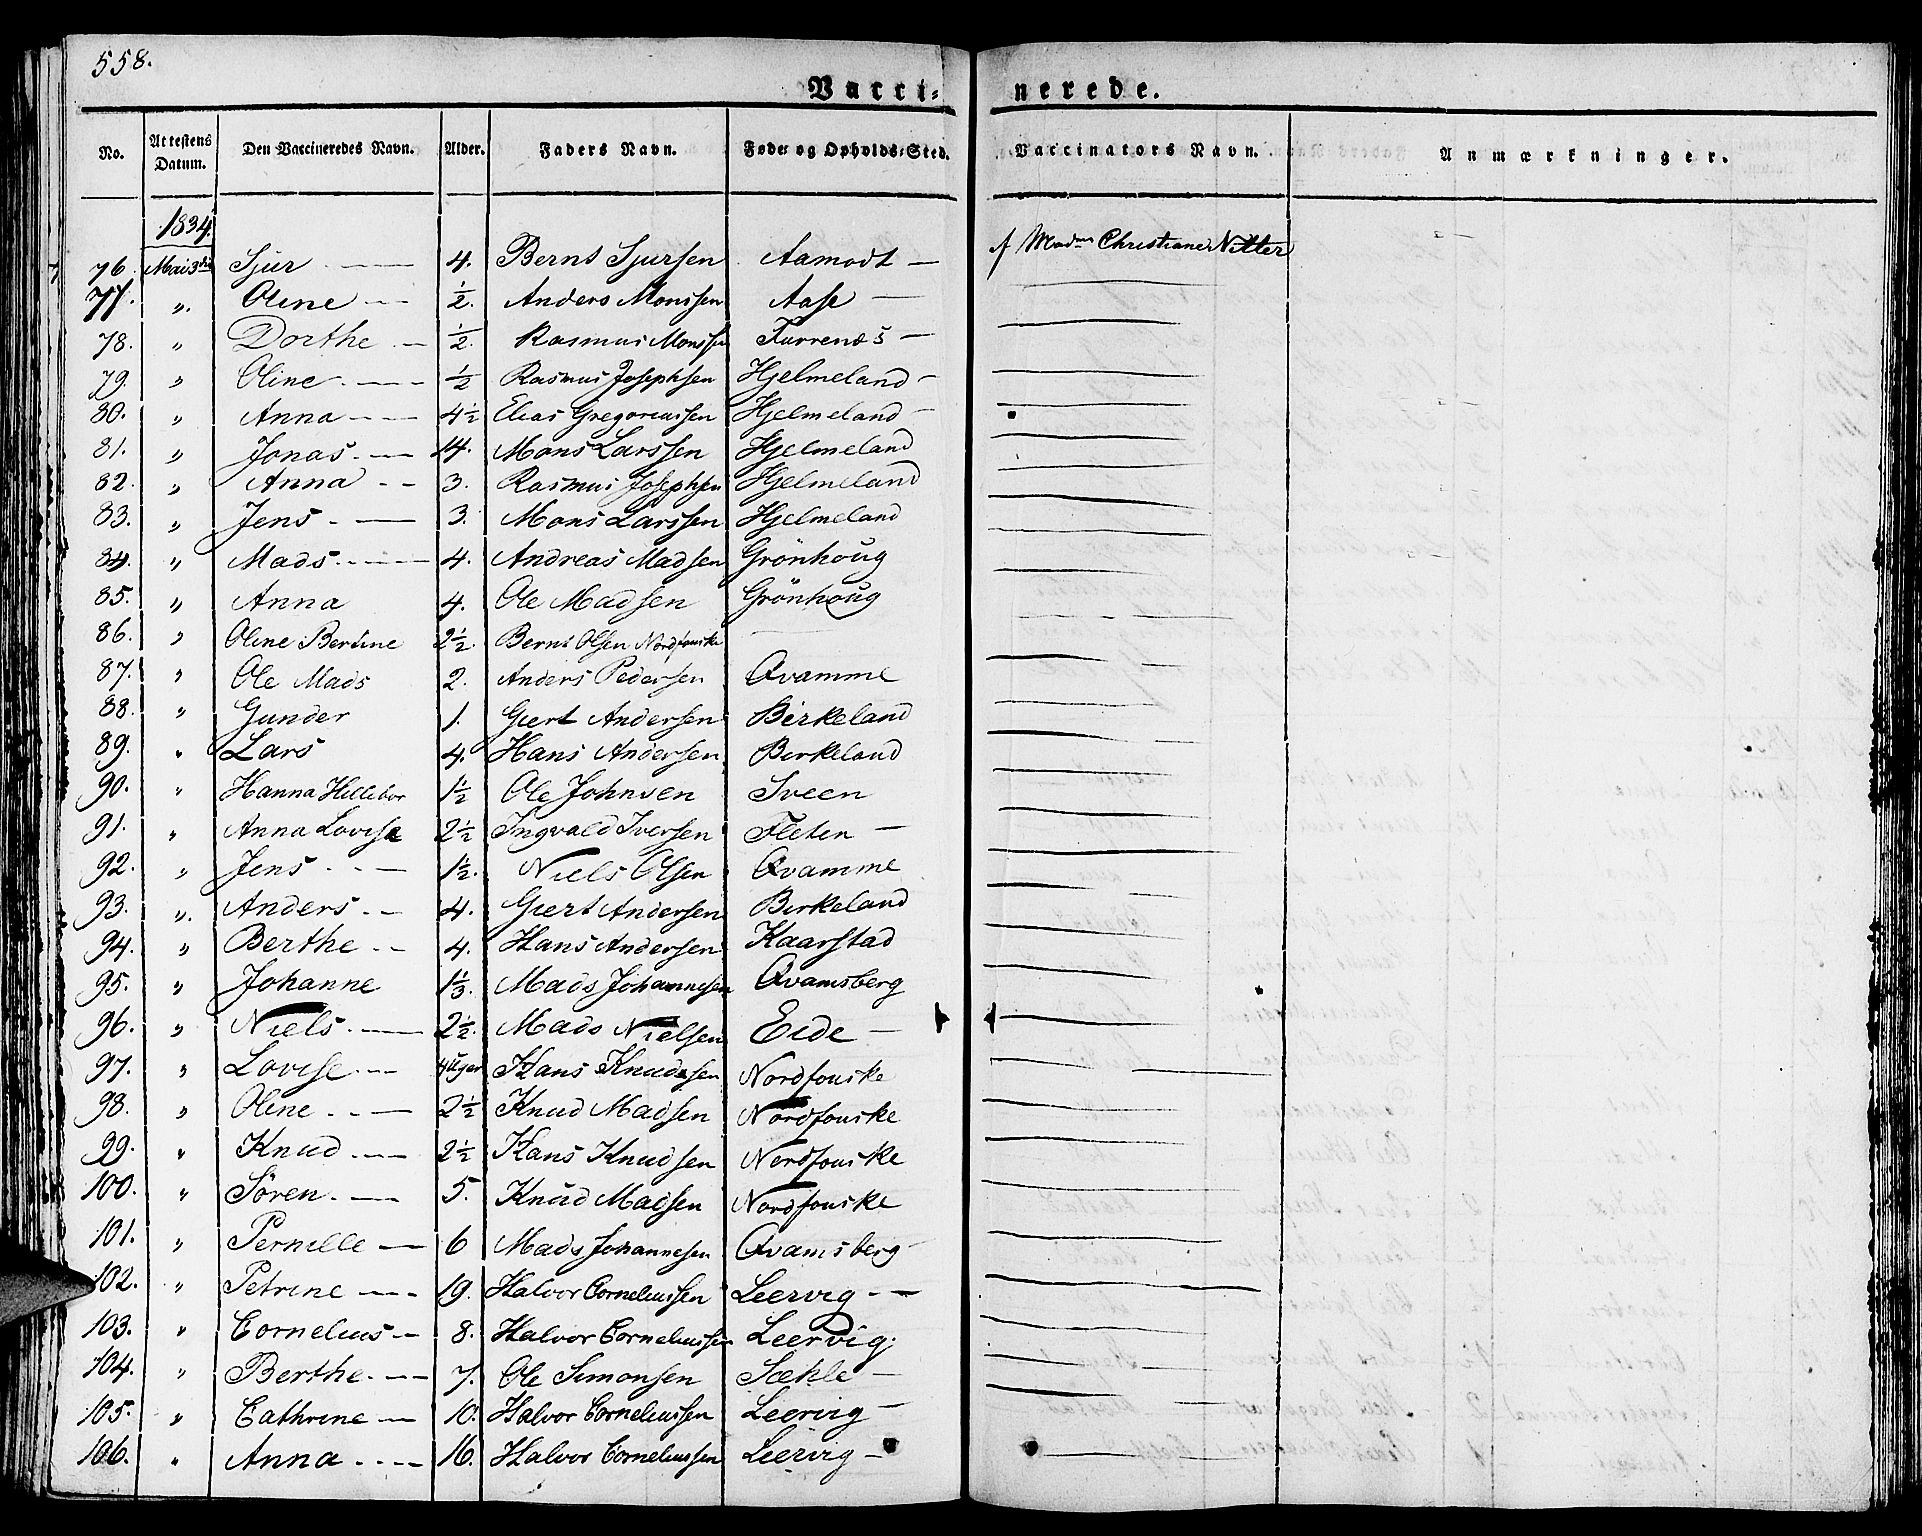 558.
Vacci-nerede.
No. Attestens Datum. Den Vaccineredes Navn. Alder. Faders Navn. Føde- og Opholds-Sted. Vaccinators Navn. Anmærkninger.
1834.
76. Mai 3die Sjur 4. Bernt Sjursen Aamodt — af Madme Christiane Nitter
77. " Oline ½. Anders Monssen Aase —
78. " Dorthe ½. Rasmus Monssen Furrenes —
79. " Oline ½ Rasmus Josephsen Hjelmeland —
80. " Anna 4½ Elias Gregoriussen Hjelmeland —
81. " Jonas 14. Mons Larssen Hjelmeland
82. " Anna 3. Rasmus Josephsen Hjelmeland
83. " Jens 3. Mons Larssen Hjelmeland
84. " Mads 4. Andreas Madsen Grönhoug
85. " Anna 4. Ole Madsen Grönhoug
86. " Oline Bertine 2½. Bernt Olsen Nordfonske
87. " Ole Mads 2. Anders Pedersen Qvamme
88. " Gunder 1. Giert Andersen Birkeland
89. " Lars 4. Hans Andersen Birkeland
90. " Hanna Hellebor 1½ Ole Johnsen Sveen
91. " Anna Lovise 2½ Ingvald Iversen Fleten —
92. " Jens 1½. Niels Olsen Qvamme
93. " Anders 4. Giert Andersen Birkeland
94. " Berthe 4. Hans Andersen Kaarstad
95. " Johanne 1⅓. Mads Johannesen Qvamsberg
96. " Niels 2½. Mads Nielsen Eide —
97. " Lovise 4 Uger Hans Knudsen Nordfonske
98. " Oline 2½ Knud Madsen Nordfonske
99. " Knud 2½ Hans Knudsen Nordfonske
100. " Sören 5. Knud Madsen Nordfonske
101. " Pernille 6 Mads Johannesen Qvamsberg
102. " Petrine 19. Halvor Corneliussen Leervig —
103. " Cornelius 8. Halvor Corneliussen Leervig.
104. " Berthe 7. Ole Simonsen Sækle —
105. " Cathrine 10. Halvor Corneliussen Leervig —
106. " Anna 16. Halvor Corneliussen Leervig —